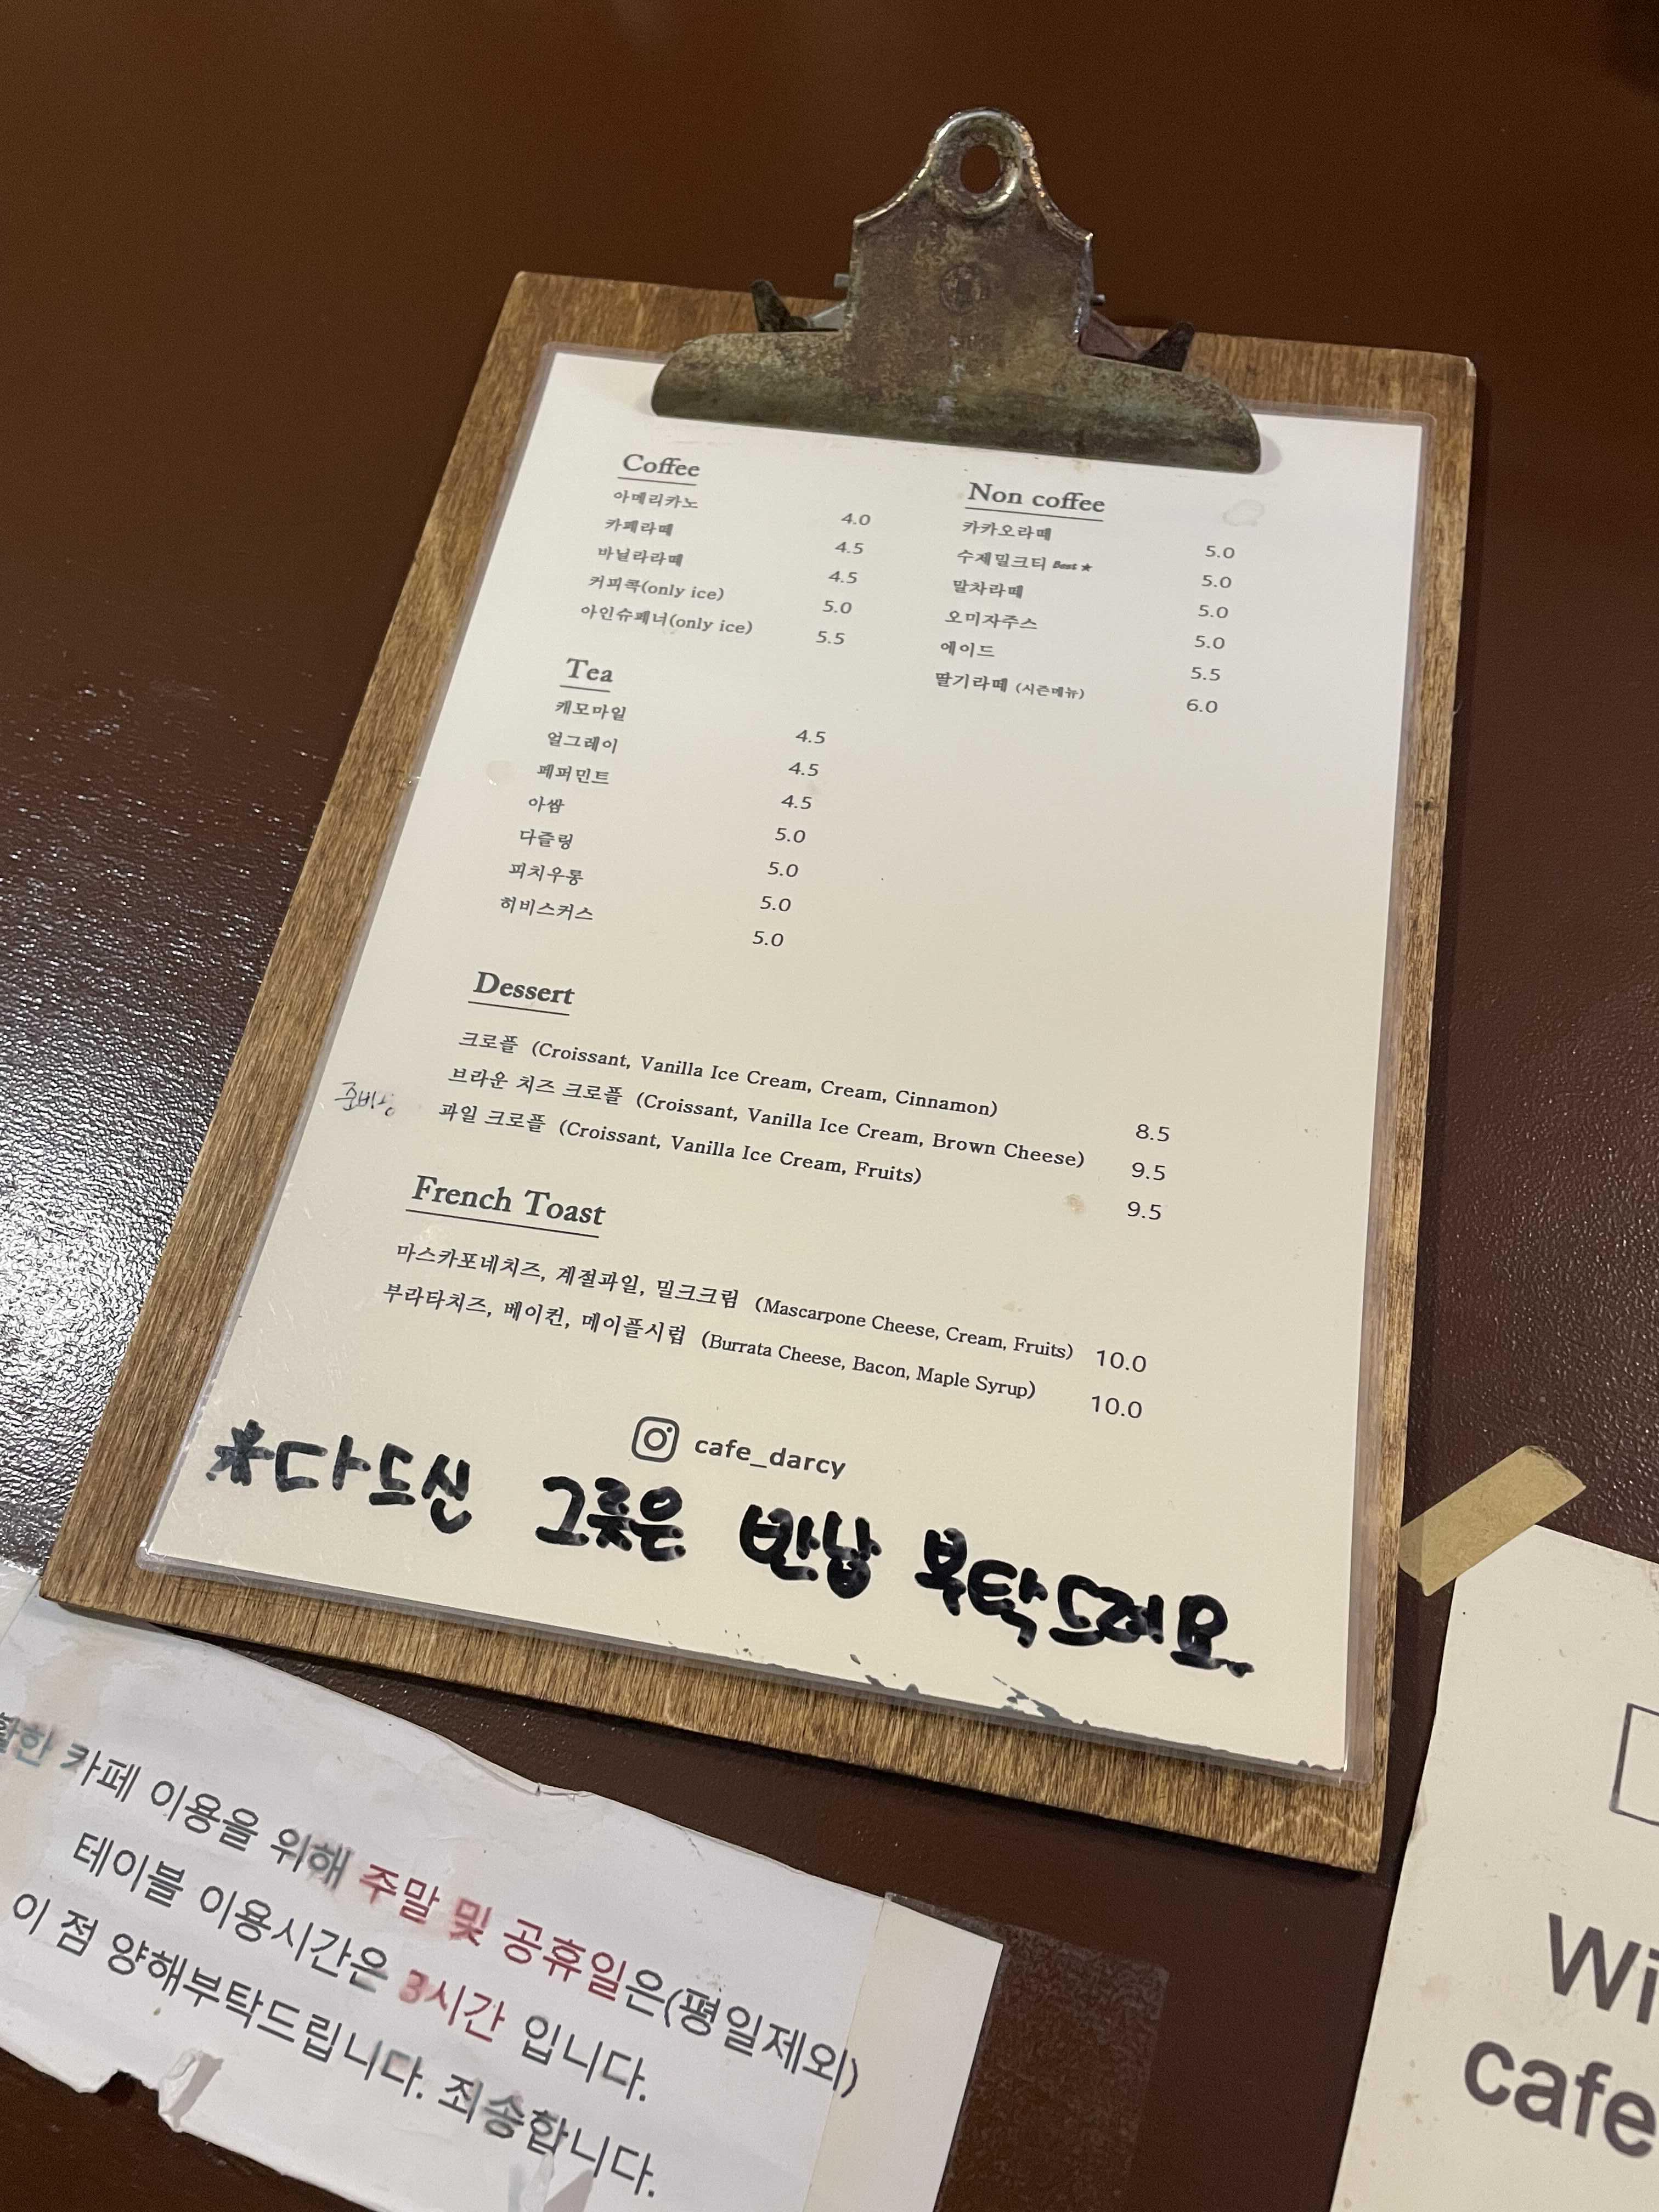 Coffee
아메리카노 4.0
카페라떼 4.5
바닐라라떼 4.5
커피콕(only ice) 5.0
아인슈페너(only ice) 5.5
Non coffee
카카오라떼 5.0
수제밀크티 Best ★ 5.0
말차라떼 5.0
오미자주스 5.0
에이드 5.5
딸기라떼 (시즌메뉴) 6.0
Tea
캐모마일 4.5
얼그레이 4.5
페퍼민트 4.5
아쌈 5.0
다즐링 5.0
피치우롱 5.0
히비스커스 5.0
Dessert
크로플 (Croissant, Vanilla Ice Cream, Cream, Cinnamon) 8.5
브라운 치즈 크로플 (Croissant, Vanilla Ice Cream, Brown Cheese) 9.5
과일 크로플 (Croissant, Vanilla Ice Cream, Fruits) 9.5
French Toast
마스카포네치즈, 계절과일, 밀크크림 (Mascarpone Cheese, Cream, Fruits) 10.0
부라타치즈, 베이컨, 메이플시럽 (Burrata Cheese, Bacon, Maple Syrup) 10.0
cafe_darcy
*다드신 그릇은 반납 부탁드려요.
카페 이용을 위해 주말 및 공휴일은(평일제외)
테이블 이용시간은 3시간 입니다.
이 점 양해부탁드립니다. 죄송합니다.
Wi
cafe